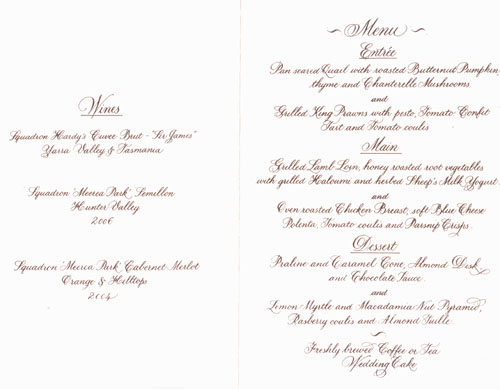 Wines
Squadron Hardy's Cuvee Brut - "Sir James"
Yarra Valley & Tasmania
Squadron 'Meerea Park' Semillon
Hunter Valley
2006
Squadron 'Meerea Park' Cabernet Merlot
Orange & Hilltops
2004
~ Menu ~
Entrée
Pan seared Quail with roasted Butternut Pumpkin,
thyme and Chanterelle Mushrooms
and
Grilled King Prawns with pesto, Tomato Confit
Tart and Tomato coulis
Main
Grilled Lamb Loin, honey roasted root vegetables
with grilled Haloumi and herbed Sheep's Milk Yogurt
and
Oven roasted Chicken Breast, soft Blue Cheese
Polenta, Tomato coulis and Parsnip Crisps.
Dessert
Praline and Caramel Cone, Almond Disk
and Chocolate Sauce.
and
Lemon Myrtle and Macadamia Nut Pyramid,
Rasberry coulis and Almond Tuille.
~
Freshly brewed Coffee or Tea
Wedding Cake